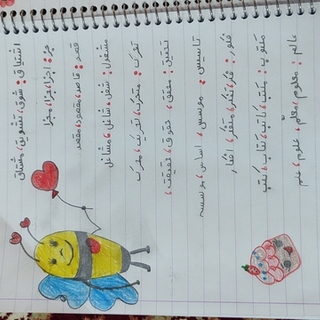 اشتیاق: شوق، تشویق، مشتاق
جز: اجزا، جزا، مجزا
قصد: قاصد، مقصود، مقصد
مشغول: شغل، شاغل، مشاغل
تحرک: متحرک، تحریک، محرک
تحقیق: محقق، حقوق، حقیقت،
تاسیس: موسس، اساس، موسسه
فکور: فکر، تفکر، متفکر، افکار
مکتوب: مکتب، کاتب، کتاب، کتب
عالم: معلوم، معلّم، علوم، علم